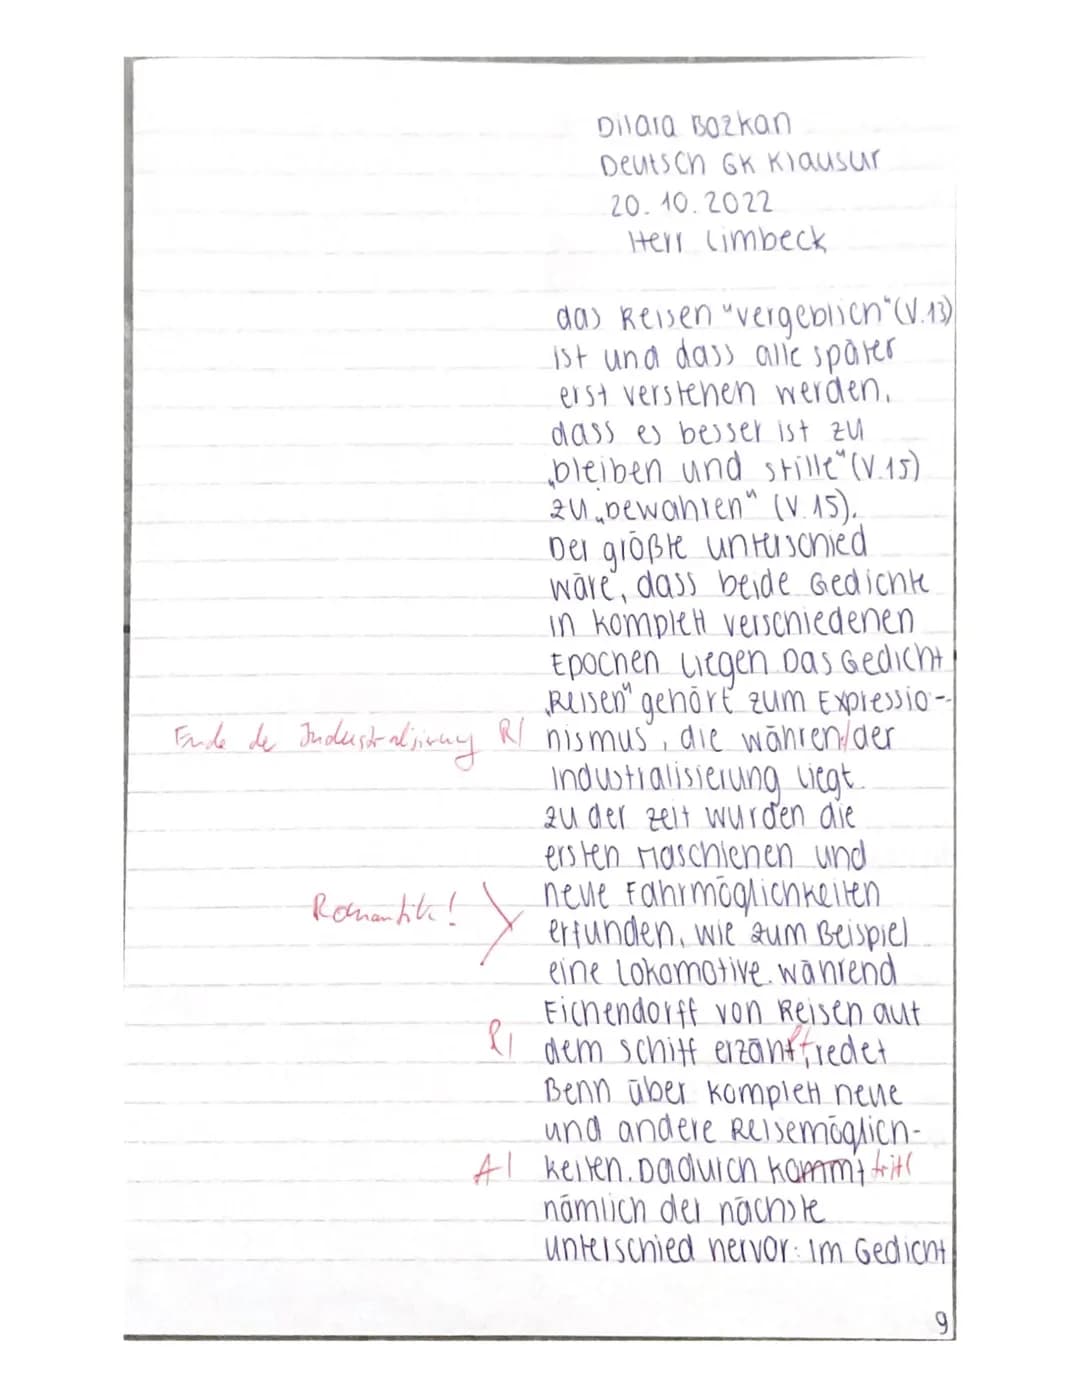 Dilara Bozkan
Deutsch GK Klausur
20.10.2022
Herr Limbeck
das Reisen "vergeblich" (V.13)
ist und dass alle später
erst verstehen werden,
dass es besser ist zu
„bleiben und stille" (V.15)
zu „bewahren" (V.15).
Der größte unterschied
wäre, dass beide Gedichte
in komplett verschiedenen
Epochen liegen. Das Gedicht
„Reisen" gehört zum Expressio-
Ende de Industrialisierung R| nismus, die währen/der
Industrialisierung liegt.
zu der zeit wurden die
ersten Maschienen und
neue Fahrmöglichkeiten
Romantik! erfunden, wie zum Beispiel
eine Lokomotive. während
Eichendorff von Reisen auf
R| dem schiff erzählt, redet
Benn über komplett neue
und andere Reisemöglich-
A| keiten. Dadurch kommt tritt
nämlich der nächste
unterschied hervor: Im Gedicht
9